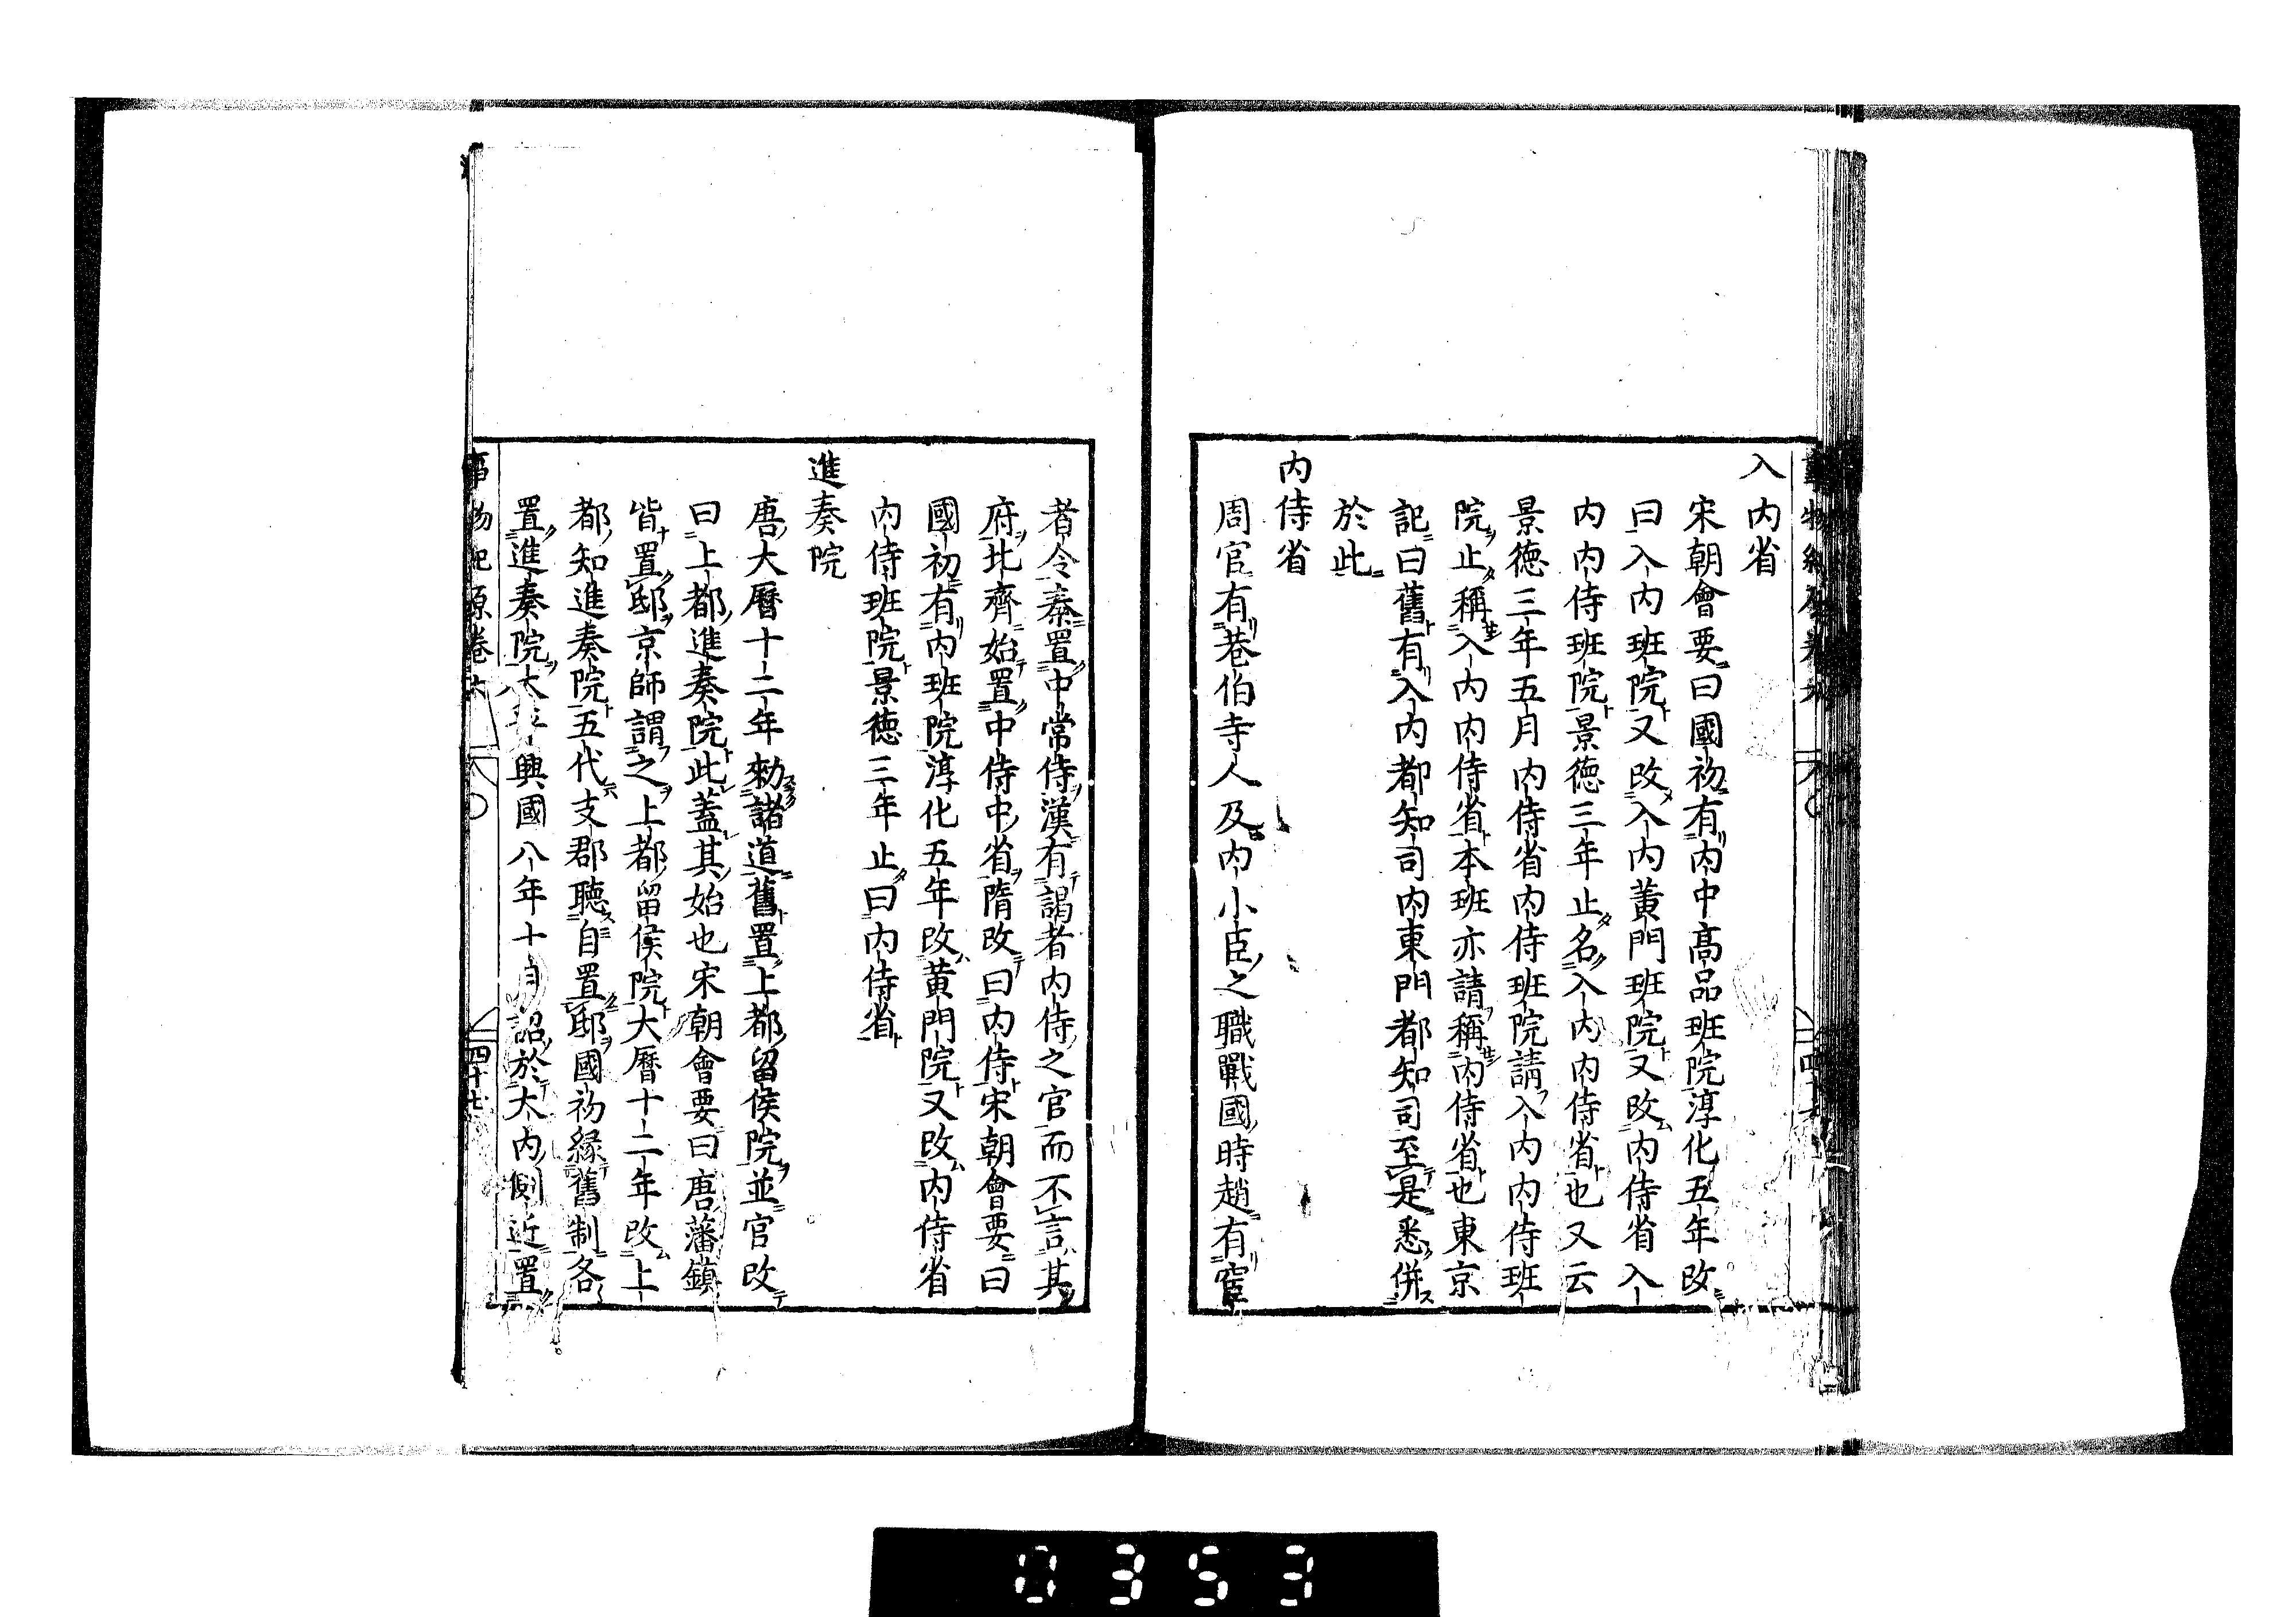 入内省
宋朝會要曰國初有内中髙品班院淳化五年改
曰入内班院又改入内黄門班院又改内侍省入
内内侍班院景徳三年止名入内内侍省也又云
景徳三年五月内侍省内侍班院請入内内侍班
院止稱入内内侍省本班亦請稱内侍省也東京
記曰舊有入内都知司内東門都知司至是悉併
於此
内侍省
周官有巷伯寺人及内小臣之職戰國時趙有宦
者令秦置中常侍漢有謁者内侍之官而不言其
府北齊始置中侍中省隋改曰内侍宋朝會要曰
國初有内班院淳化五年改黄門院又改内侍省
内侍班院景徳三年止曰内侍省
進奏院
唐大曆十二年勑諸道舊置上都留侯院並官改
曰上都進奏院此蓋其始也宋朝會要曰唐藩鎮
皆置邸京師謂之上都留侯院大曆十二年改上
都知進奏院五代支郡聽自置邸國初縁舊制各
置進奏院太平興國八年十月詔於大内側近置
事物紀原卷六 四十七
0353